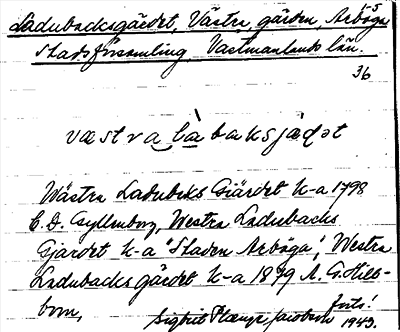 Ladubacksgärdet, Västra, gården, Arboga
Stadsförsamling Västmanlands län.
36
væstra làbaksjäḍət
Wästra Ladubcks Giärdet k-a 1798
C. D. Gyllenborg, Westra Ladubacks
Gjärdet k-a "Staden Arboga", Westra
Ladubacks gärdet k-a 1879 A. G. Hill-
bom,
forts!
Sigrid Jacobson 1943.